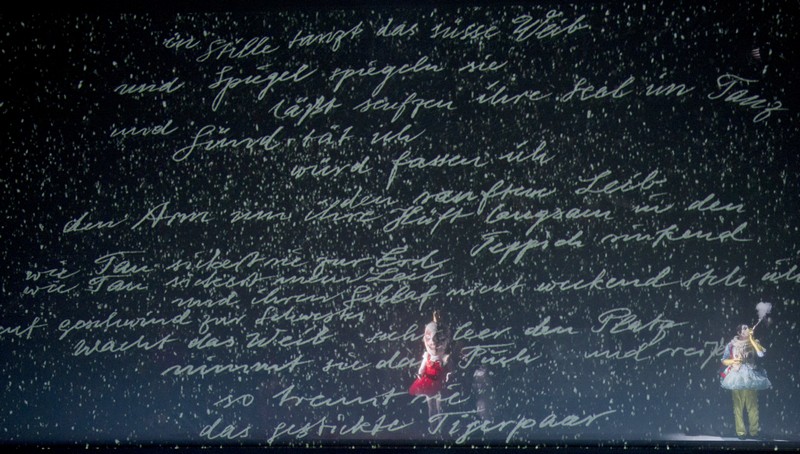 in Stille tanzt das süsse Weib
und Spiegel spiegeln sie
läßt seufzen ihre Seel im Tanz
und Sünd tät ich
würd fassen ich
den sanften Leib
den Arm um ihre Hüft langsam in den
Teppich sinkend
wie Tau sickert sie zur Erd
wie Tau sickert mein Leib
und ihren Schlaf nicht weckend
geschwind zur Schwester
wacht das Weib sieht leer den Platz
nimmt sie den und
so trennt sie
das gestickte Tigerpaar